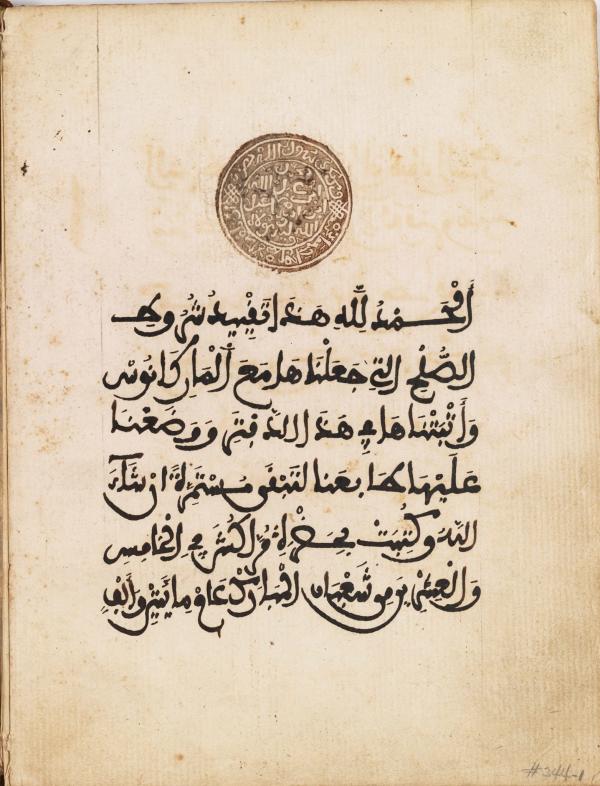 اَلْحَمْدُ لِلّهِ هَذَا تَقْيِيدُ شُرُوطِ
الصُّلْحِ التِى جَعَلْنَاهَا مَعَ اَلْمَارِكَانُوسْ
وَأَثْبَتْنَاهَا فِى هَذَا الدَّفْتَرِ وَوَضَعْنَا
عَلَيْهَا طَابِعَنَا لِتَبْقَى مُسْتَمِرَّةً اِنْ شَآءَ
اللهُ وَكُتِبَتْ بِحَضْرَةِ مُرَّاكُشَ فِى الْخَامِسِ
وَالْعِشْرِينَ مِن شَعْبَانَ الْمُبَارَكْ عَامَ مِايَتَيْنِ وَأَلْفٍ
#344-1